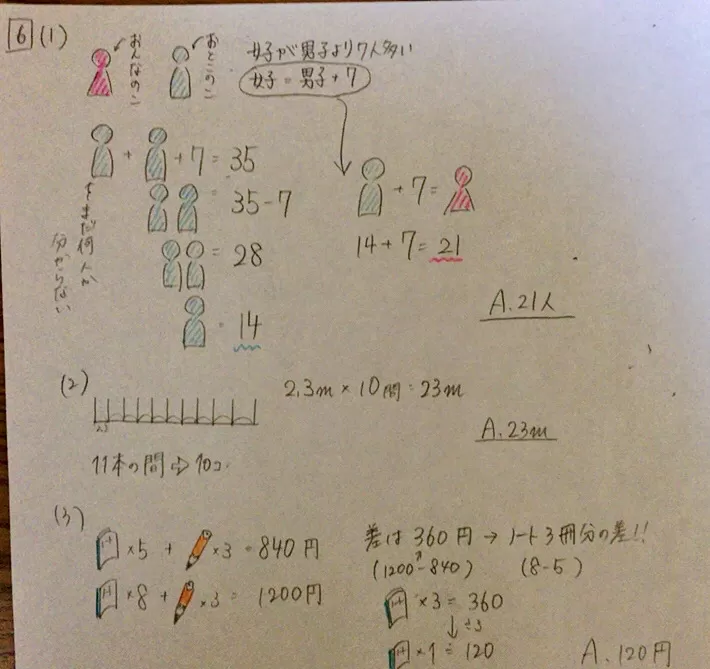 6 (1)
おんなのこ
おとこのこ
女子が男子より7人多い
女子 = 男子 + 7
+ +7 = 35
= 35-7
= 28
14
まだ何人か
分からない
+7=
14+7=21
A.21人
(2)
2.3m × 10間 = 23m
2.3
A.23m
11本の間⇨10コ
(3)
×5 + ×3 = 840円
×8 + ×3 = 1200円
差は360円 → ノート3冊分の差!!
(1200-840) (8-5)
×3 = 360
↓÷3
×1 = 120
A.120円